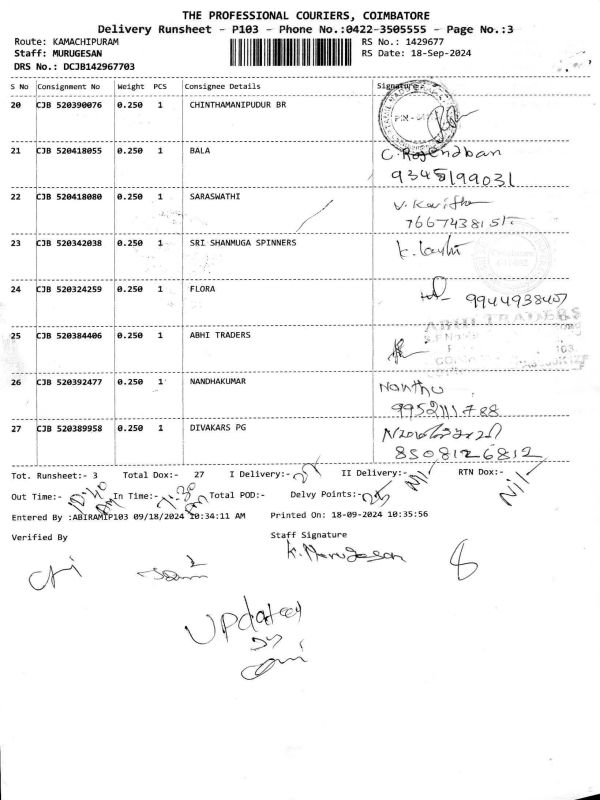 THE PROFESSIONAL COURIERS, COIMBATORE
Delivery Runsheet - P103 - Phone No.:0422-3505555 - Page No.:3
Route: KAMACHIPURAM RS No.: 1429677
Staff: MURUGESAN RS Date: 18-Sep-2024
DRS No.: DCJB142967703
S No Consignment No Weight PCS Consignee Details Signature
20 CJB 520390076 0.250 1 CHINTHAMANIPUDUR BR
21 CJB 520418055 0.250 1 BALA C. Rajendban
9345199031
22 CJB 520418080 0.250 1 SARASWATHI V. Kavitha
7667438151.
23 CJB 520342038 0.250 1 SRI SHANMUGA SPINNERS
24 CJB 520324259 0.250 1 FLORA 9944938407
25 CJB 520384406 0.250 1 ABHI TRADERS ABHI TRADERS
26 CJB 520392477 0.250 1 NANDHAKUMAR Nanthu
9952111788
27 CJB 520389958 0.250 1 DIVAKARS PG
8508126812
Tot. Runsheet:- 3 Total Dox:- 27 I Delivery:- 25 II Delivery:- Nil RTN Dox:- Nil
Out Time:- 10:40 AM In Time:- 11:30 AM Total POD:- Delvy Points:- 25
Entered By :ABIRAMIP103 09/18/2024 10:34:11 AM Printed On: 18-09-2024 10:35:56
Verified By Staff Signature
K. Murugesan 8
Updated
by